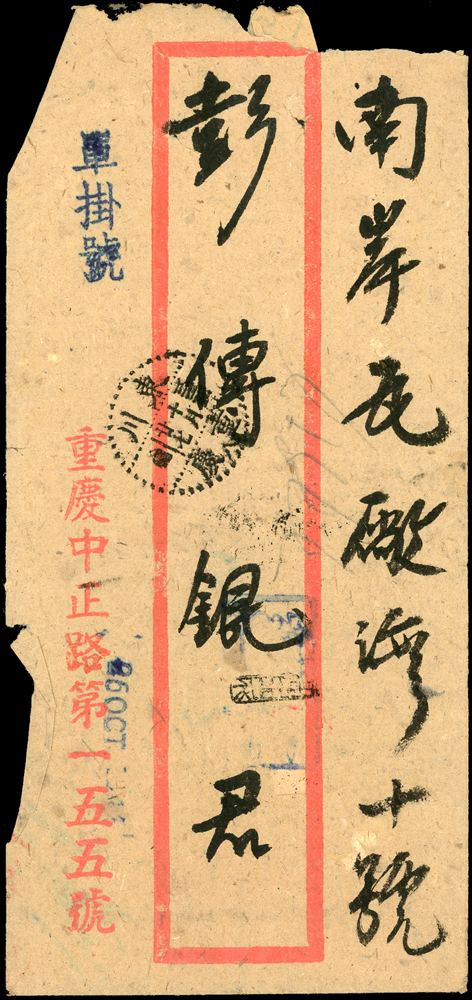 南岸瓦廠灣十號
彭傳銀君
單掛號
重慶中正路第一五五號
26OCT